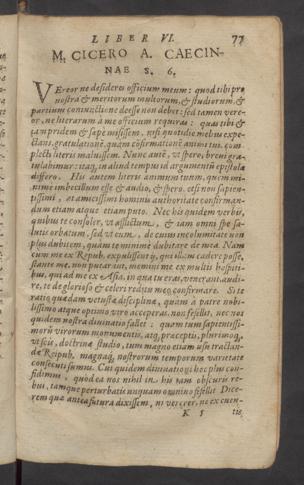 LIBER VI. 77
M. CICERO A. CAECIN-
NAE S. 6.
VEreor ne desideres officium meum: quod tibi pro
nostra & meritorum multorum, & studiorum, &
partium coniunctione deesse non debet: sed tamen vere-
or, ne literarum à me officium requiras: quas tibi &
iam pridem & sæpe misissem, nisi quotidie melius expe-
ctans, gratulationē, quàm cōfirmationē animi tui, com-
plecti literis maluissem. Nunc autē, vt spero, breui gra-
tulabimur: itaq; in aliud tempus id argumentū epistolæ
differo. His autem literis animum tuum, quem mi-
nimè imbecillum esse & audio, & spero, etsi non sapien-
tissimi, at amicissimi hominis authoritate confirman-
dum etiam atque etiam puto. Nec his quidem verbis,
quibus te consoler, vt afflictum, & iam omni spe sa-
lutis orbatum, sed vt eum, de cuius incolumitate non
plus dubitem, quàm te minimè dubitare de mea. Nam
cum me ex Repub. expulissent ij, qui illam cadere posse,
stante me, non putarant, memini me ex multis hospiti-
bus, qui ad me ex Asia, in qua tu eras, venerant, audi-
re, te de glorioso & celeri reditu meo confirmare. Si te
ratio quædam vetustæ disciplinæ, quam à patre nobi-
lissimo atque optimo viro acceperas, non fefellit, nec nos
quidem nostra diuinatio fallet: quam tum sapientissi-
morū virorum monumentis, atq; præceptis, plurimoq;,
vt scis, doctrinæ studio, tum magno etiam vsu tractan-
dæ Reipub. magnaq; nostrorum temporum varietate
consecuti sumus. Cui quidem diuinationi hoc plus con-
fidimus, quòd ea nos nihil in his tam obscuris re-
bus, tamque perturbatis vnquam omnino fefellit. Dice-
rem quæ antea futura dixissem, ni vererer, ne ex euen-
K 5 tis